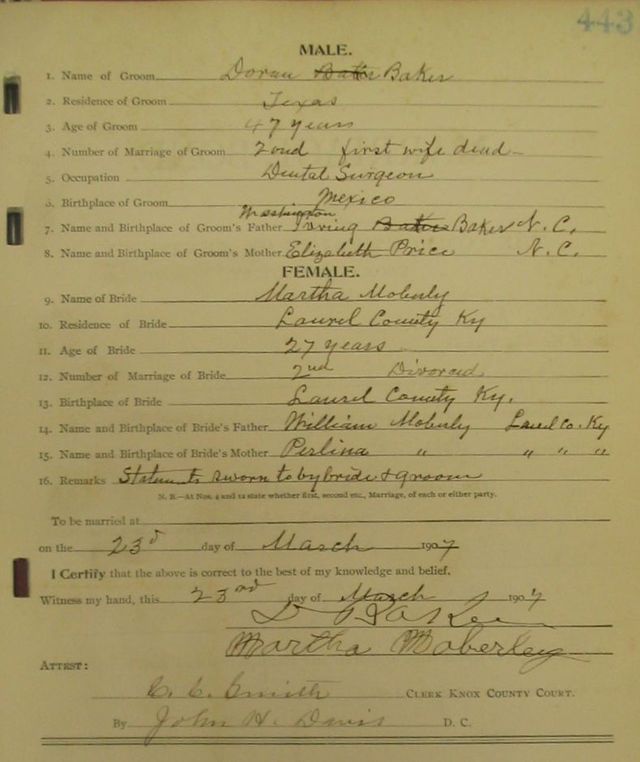 443
MALE.
1. Name of Groom Doran Baker Baker
2. Residence of Groom Texas
3. Age of Groom 47 years
4. Number of Marriage of Groom 2ond first wife dead
5. Occupation Dental Surgeon
6. Birthplace of Groom Mexico
Washington
7. Name and Birthplace of Groom's Father Irving Baker Baker N. C.
8. Name and Birthplace of Groom's Mother Elizabeth Price N. C.
FEMALE.
9. Name of Bride Martha Moberly
10. Residence of Bride Laurel County Ky
11. Age of Bride 27 years
12. Number of Marriage of Bride 2nd Divorced
13. Birthplace of Bride Laurel County Ky.
14. Name and Birthplace of Bride's Father William Moberly Laurel Co. Ky
15. Name and Birthplace of Bride's Mother Perlina " " " "
16. Remarks Statements sworn to by bride & groom
N. B.—At Nos. 4 and 12 state whether first, second etc., Marriage, of each or either party.
To be married at
on the 23d day of March 1907
I Certify that the above is correct to the best of my knowledge and belief.
Witness my hand, this 23rd day of March 1907
D Baker
Martha Moberley
ATTEST:
C. C. Smith CLERK KNOX COUNTY COURT.
By John H. Davis D. C.